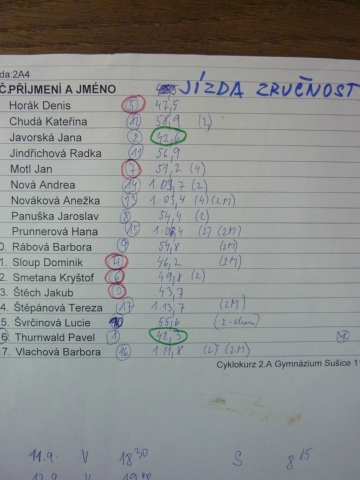 da:2A4
Č.PŘÍJMENÍ A JMÉNO JÍZDA ZRUČNOST
Horák Denis 5 47,5
Chudá Kateřina 12 58,9 (2)
Javorská Jana 2 42,6
Jindřichová Radka 11 56,9
Motl Jan 7 51,2 (4)
Nová Andrea 14 1.03,7 (2)
Nováková Anežka 13 1.03,4 (4)(2M)
Panuška Jaroslav 8 54,4 (2)
Prunnerová Hana 15 (2) (2M)
0. Rábová Barbora 9 54,8 (2M)
1. Sloup Dominik 4 46,2 (2M)
2. Smetana Kryštof 6 49,8 (2)
3. Štěch Jakub 3 43,7
4. Štěpánová Tereza 17 1.13,7 (2M)
5. Švrčinová Lucie 10 55,6
6 Thurnwald Pavel 1 42,3
7. Vlachová Barbora 16 1.11,8 (2) (2M)
Cyklokurz 2.A Gymnázium Sušice 1
11.9. V 18 30 S 8 15